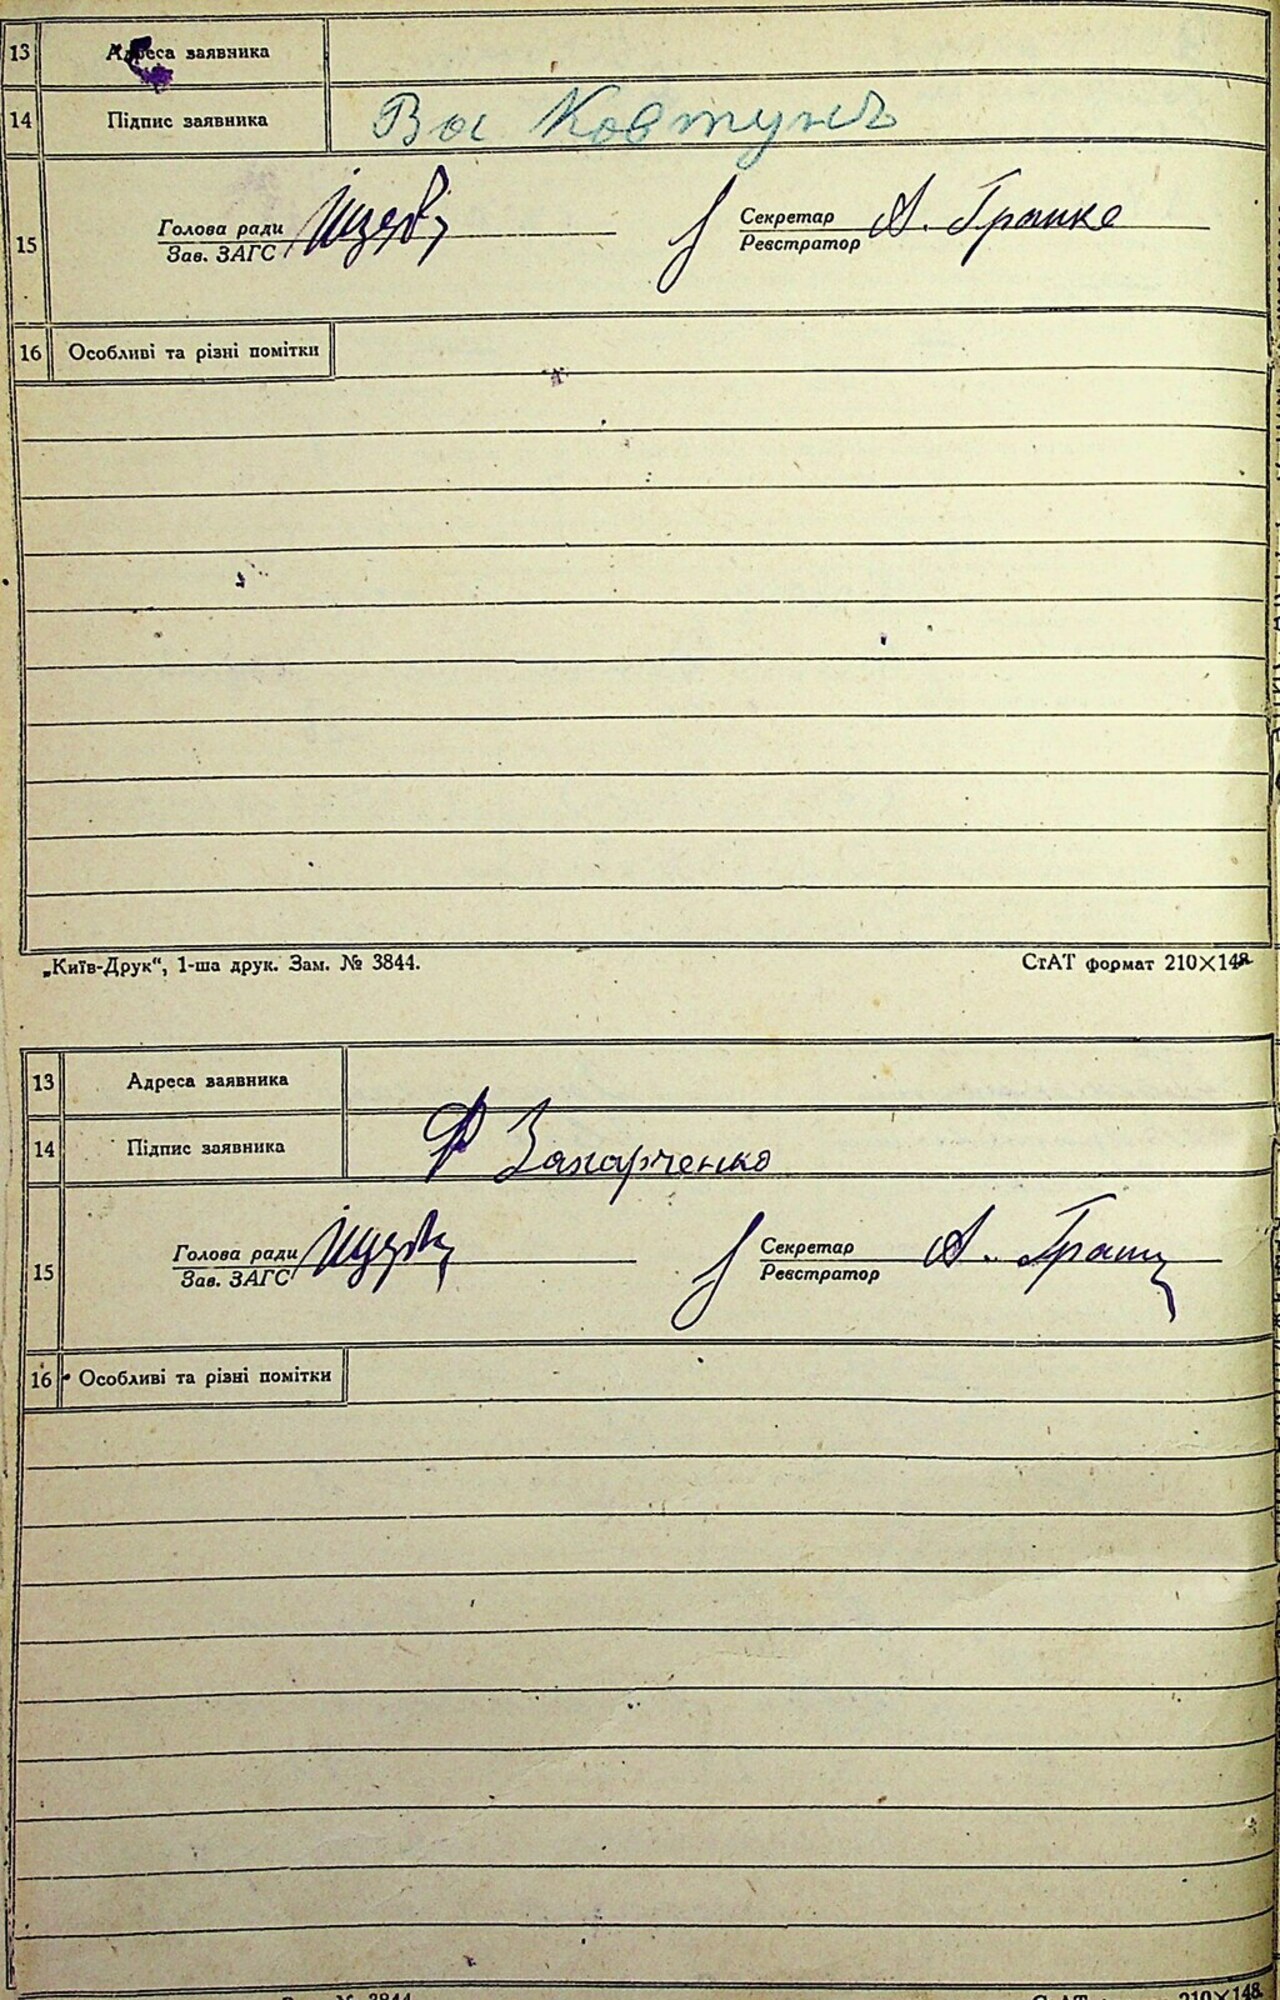 13 Адреса заявника
14 Підпис заявника Ва Ковтунъ
Голова ради Секретар А.
15
Зав. ЗАГС Реєстратор
16 Особливі та різні помітки
„Київ-Друк“, 1-ша друк. Зам. № 3844. СтАТ формат 210×148
13 Адреса заявника
14 Підпис заявника Ф Захарченко
Голова ради Секретар А.
15
Зав. ЗАГС Реєстратор
16 Особливі та різні помітки
№ 3844 210×148